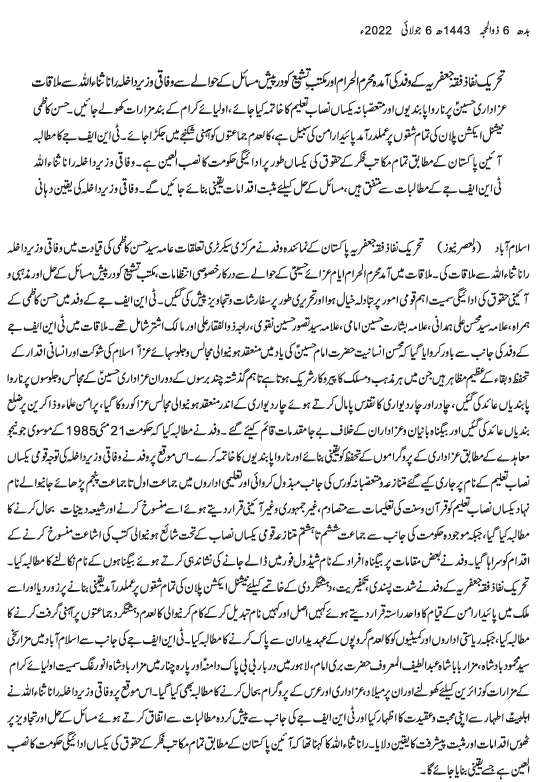 بدھ 6 ذوالحجہ 1443ھ 6 جولائی 2022ء
تحریک نفاذ فقہ جعفریہ کے وفد کی آمدہ محرم الحرام اور مکتب تشیع کو درپیش مسائل کے حوالے سے وفاقی وزیر داخلہ رانا ثناء اللہ سے ملاقات
عزاداری حسینؑ پر ناروا پابندیوں اور متعصبانہ یکساں نصاب تعلیم کا خاتمہ کیا جائے، اولیائے کرام کے بند مزارات کھولے جائیں۔ حسن کاظمی
نیشنل ایکشن پلان کی تمام شقوں پر عملدرآمد پائیدار امن کی سبیل ہے، کالعدم جماعتوں کو آہنی شکنجے میں جکڑا جائے۔ ٹی این ایف جے کا مطالبہ
آئین پاکستان کے مطابق تمام مکاتب فکر کے حقوق کی یکساں طور پر ادائیگی حکومت کا نصب العین ہے۔ وفاقی وزیر داخلہ رانا ثناء اللہ
ٹی این ایف جے کے مطالبات سے متفق ہیں، مسائل کے حل کیلئے مثبت اقدامات یقینی بنائے جائیں گے۔ وفاقی وزیر داخلہ کی یقین دہانی
اسلام آباد (ولعصر نیوز) تحریک نفاذ فقہ جعفریہ پاکستان کے نمائندہ وفد نے مرکزی سیکرٹری تعلقات عامہ سید حسن کاظمی کی قیادت میں وفاقی وزیر داخلہ
رانا ثناء اللہ سے ملاقات کی۔ ملاقات میں آمدہ محرم الحرام ایام عزائے حسینیؑ کے حوالے سے درکار خصوصی انتظامات، مکتب تشیع کو درپیش مسائل کے حل اور مذہبی و
آئینی حقوق کی ادائیگی سمیت اہم قومی امور پر تبادلہ خیال ہوا اور تحریری طور پر سفارشات و تجاویز پیش کی گئیں۔ ٹی این ایف جے کے وفد میں حسن کاظمی کے
ہمراہ، علامہ سید محسن علی ہمدانی، علامہ بشارت حسین امامی، علامہ سید تصور حسین نقوی، راجہ ذوالفقار علی اور مالک اشتر شامل تھے۔ ملاقات میں ٹی این ایف جے
کے وفد کی جانب سے باور کروایا گیا کہ محسن انسانیت حضرت امام حسینؑ کی یاد میں منعقد ہونیوالی مجالس و جلوسہائے عزا اسلام کی شوکت اور انسانی اقدار کے
تحفظ و بقاء کے عظیم مظاہر ہیں جن میں ہر مذہب و مسلک کا پیروکار شریک ہوتا ہے تاہم گذشتہ چند برسوں کے دوران عزاداری حسینؑ کے مجالس و جلوسوں پر ناروا
پابندیاں عائد کی گئیں، چادر اور چاردیواری کا تقدس پامال کرتے ہوئے چاردیواری کے اندر منعقد ہونیوالی مجالس عزا کو روکا گیا، پرامن علماء و ذاکرین پر ضلع
بندیاں عائد کی گئیں اور بیگناہ بانیان و عزاداران کے خلاف بے جا مقدمات قائم کیئے گئے۔ وفد نے مطالبہ کیا کہ حکومت 21 مئی 1985 کے موسوی جونیجو
معاہدے کے مطابق عزاداری کے پروگراموں کے تحفظ کو یقینی بنائے اور ناروا پابندیوں کا خاتمہ کرے۔ اس موقع پر وفد نے وفاقی وزیر داخلہ کی توجہ قومی یکساں
نصاب تعلیم کے نام پر جاری کیے گئے متنازعہ و متعصبانہ کورس کی جانب مبذول کروائی اور تعلیمی اداروں میں جماعت اول تا جماعت پنجم پڑھائے جانیوالے نام
نہاد یکساں نصاب تعلیم کو قرآن و سنت کی تعلیمات سے متصادم، غیر جمہوری و غیر آئینی قرار دیتے ہوئے اسے منسوخ کرنے اور شیعہ دینیات بحال کرنے کا
مطالبہ کیا گیا، جبکہ موجودہ حکومت کی جانب سے جماعت ششم تا ہشتم متنازعہ قومی یکساں نصاب کے تحت شائع ہونیوالی کتب کی اشاعت منسوخ کرنے کے
اقدام کو سراہا گیا۔ وفد نے بعض مقامات پر بیگناہ افراد کے نام شیڈول فور میں ڈالے جانے کی نشاندہی کرتے ہوئے بیگناہوں کے نام نکالنے کا مطالبہ کیا۔
تحریک نفاذ فقہ جعفریہ کے وفد نے شدت پسندی، تکفیریت، دہشتگردی کے خاتمے کیلئے نیشنل ایکشن پلان کی تمام شقوں پر عملدرآمد یقینی بنانے پر زور دیا اور اسے
ملک میں پائیدار امن کے قیام کا واحد راستہ قرار دیتے ہوئے کہیں اصل اور کہیں نام تبدیل کر کے کام کرنیوالی کالعدم دہشتگرد جماعتوں پر آہنی گرفت کرنے کا
مطالبہ کیا، جبکہ ریاستی اداروں اور کمیٹیوں کو کالعدم گروپوں کے عہدیداران سے پاک کرنے کا مطالبہ کیا۔ ٹی این ایف جے کی جانب سے اسلام آباد میں مزار سخی
سید محمود بادشاہ، مزار بابا شاہ عبداللطیف المعروف حضرت بری امام، لاہور میں دربار بی بی پاک دامنؑ اور پارہ چنار میں مزار بادشاہ انور نگ سمیت اولیائے کرام
کے مزارات کو زائرین کیلئے کھولنے اور ان پر میلاد، عزاداری اور عرس کے پروگرام بحال کرنے کا مطالبہ بھی کیا گیا۔ اس موقع پر وفاقی وزیر داخلہ رانا ثناء اللہ نے
اہلبیتؑ اطہار سے اپنی محبت و عقیدت کا اظہار کیا اور ٹی این ایف جے کی جانب سے پیش کردہ مطالبات سے اتفاق کرتے ہوئے مسائل کے حل اور تجاویز پر
ٹھوس اقدامات اور مثبت پیشرفت کا یقین دلایا۔ رانا ثناء اللہ کا کہنا تھا کہ آئین پاکستان کے مطابق تمام مکاتب فکر کے حقوق کی یکساں ادائیگی حکومت کا نصب
العین ہے جسے یقینی بنایا جائے گا۔